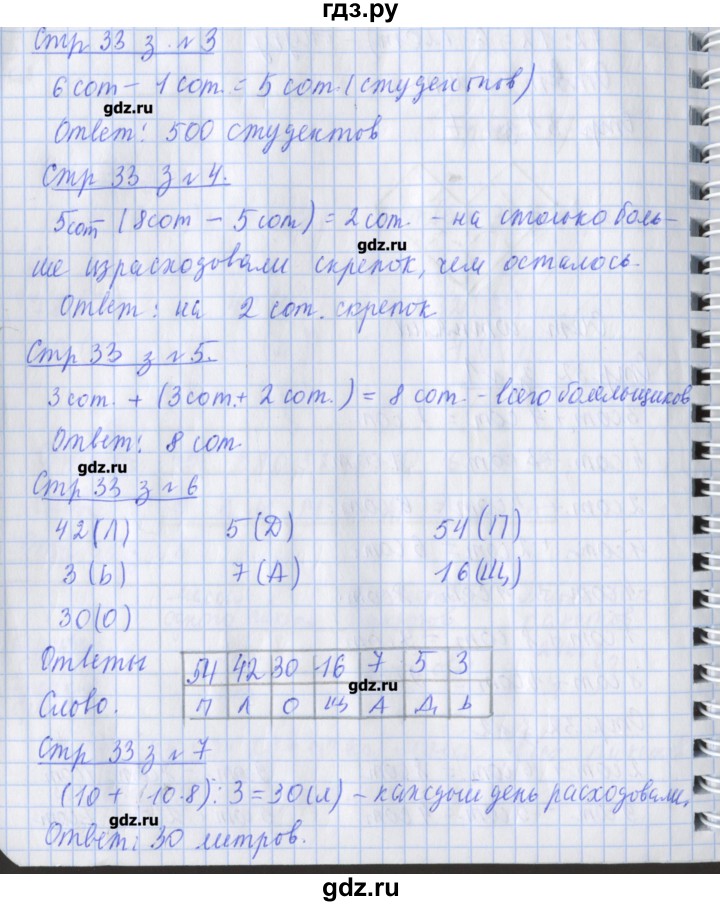 гдз.ру
Стр 33 з. №3
6 сот - 1 сот. = 5 сот. (студентов)
gdz.ru
Ответ: 500 студентов
Стр 33 з №4.
5сот - (8сот - 5 сот) = 2 сот. - на столько боль-
gdz.ru
ше израсходовали скрепок, чем осталось.
Ответ: на 2 сот. скрепок
Стр 33 з №5.
gdz.ru
3 сот. + (3 сот. + 2 сот.) = 8 сот. - всего болельщиков
Ответ: 8 сот
gdz.ru
Стр 33 з №6
42 (Л) 5 (Д) 54 (П)
3 (Ь) 7 (А) 16 (Щ)
30 (О)
Ответы 54 42 30 16 7 5 3
gdz.ru
Слово. П Л О Щ А Д Ь
Стр 33 з №7
(10 + 10·8) : 3 = 30 (л) - каждый день расходовали,
gdz.ru
Ответ: 30 литров.
gdz.ru